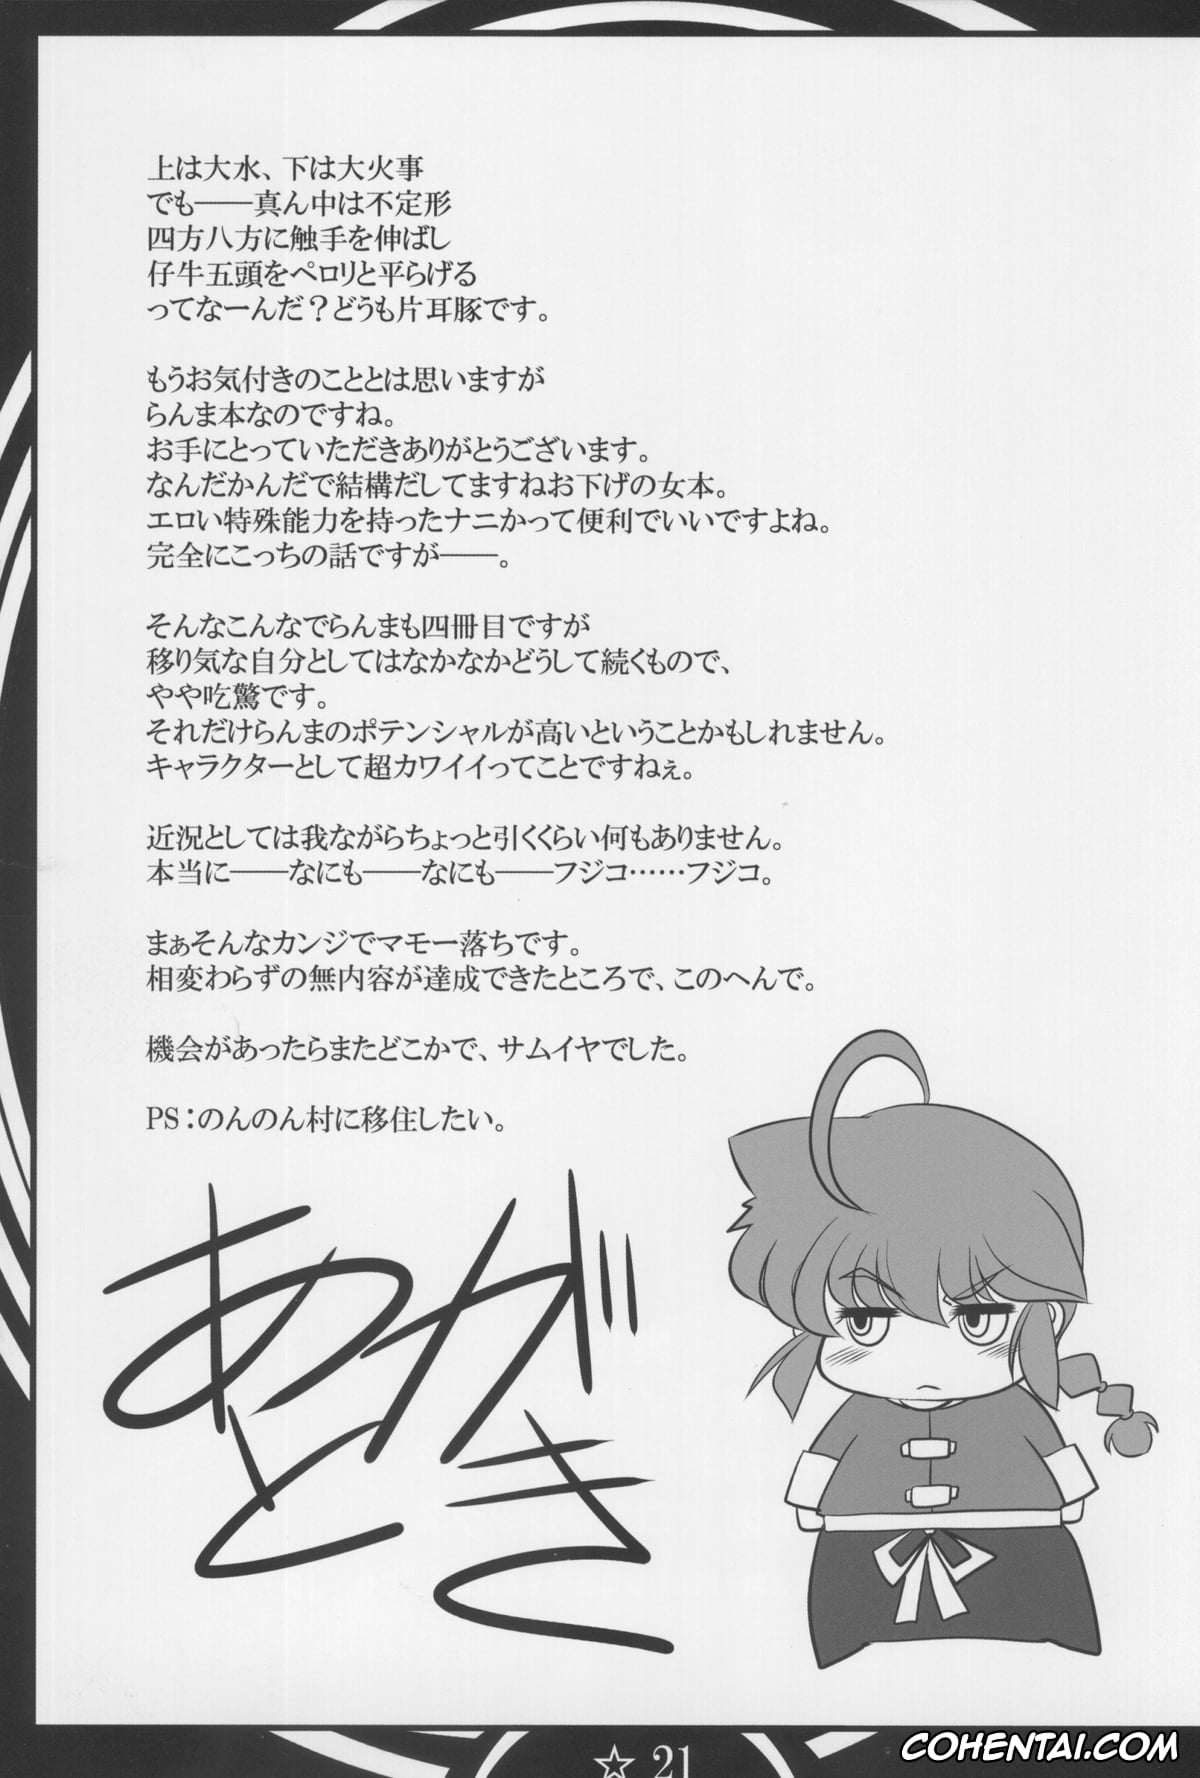 上は大水、下は大火事
でも――真ん中は不定形
四方八方に触手を伸ばし
仔牛五頭をペロリと平らげる
ってなーんだ？どうも片耳豚です。
もうお気付きのこととは思いますが
らんま本なのですね。
お手にとっていただきありがとうございます。
なんだかんだで結構だしてますねお下げの女本。
エロい特殊能力を持ったナニかって便利でいいですよね。
完全にこっちの話ですが――。
そんなこんなでらんまも四冊目ですが
移り気な自分としてはなかなかどうして続くもので、
やや吃驚です。
それだけらんまのポテンシャルが高いということかもしれません。
キャラクターとして超カワイイってことですねぇ。
近況としては我ながらちょっと引くくらい何もありません。
本当に――なにも――なにも――フジコ……フジコ。
まぁそんなカンジでマモー落ちです。
相変わらずの無内容が達成できたところで、このへんで。
機会があったらまたどこかで、サムイヤでした。
PS：のんのん村に移住したい。
あとがき
☆ 21
COHENTAI.COM